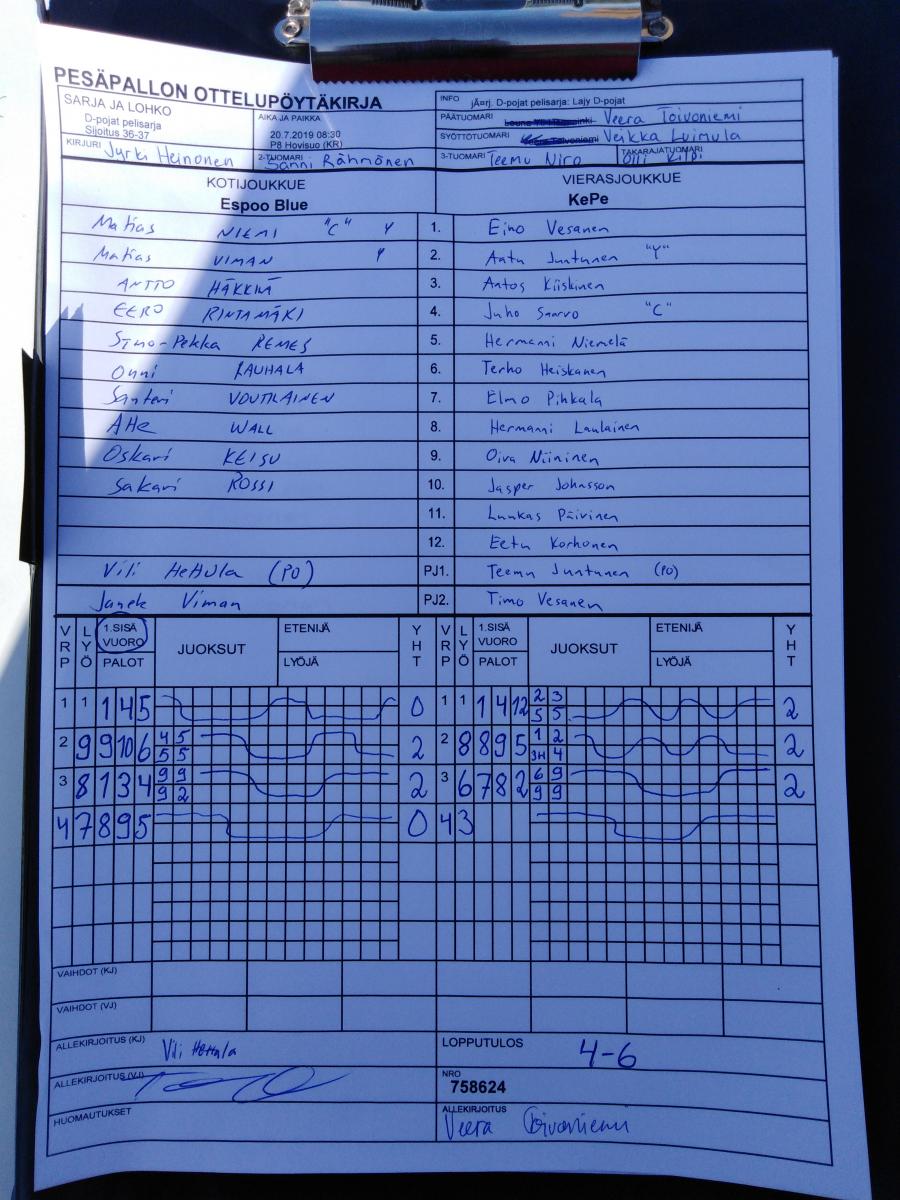 PESÄPALLON OTTELUPÖYTÄKIRJA
SARJA JA LOHKO
D-pojat pelisarja
Sijoitus 36-37
AIKA JA PAIKKA
20.7.2019 08:30
P8 Hovisuo (KR)
INFO jÃ¤rj. D-pojat pelisarja: Lajy D-pojat
PÄÄTUOMARI Veera Toivoniemi
SYÖTTÖTUOMARI Veera Toivoniemi Veikka Luimula
KIRJURI Jyrki Heinonen
2-TUOMARI Sanni Rähmönen
3-TUOMARI Teemu Niro
TAKARAJATUOMARI Olli Kilpi
KOTIJOUKKUE
Espoo Blue
VIERASJOUKKUE
KePe
Matias NIEMI "C" Y 1. Eino Vesanen
Matias VIMAN Y 2. Aatu Juntunen "Y"
ANTTO HÄKKIÄ 3. Antos Kiiskinen
EERO RINTAMÄKI 4. Juho Saarvo "C"
Simo-Pekka REMES 5. Hermanni Niemelä
Onni RAUHALA 6. Terho Heiskanen
Santeri VOUTILAINEN 7. Elmo Pihkala
Atte WALL 8. Hermanni Laulainen
Oskari KEISU 9. Oiva Niininen
Sakari ROSSI 10. Jasper Johnsson
11. Luukas Päivinen
12. Eetu Korhonen
Vili Hettula (PO) PJ1. Teemu Juntunen (PO)
Janek Viman PJ2. Timo Vesanen
VRP LYÖ 1.SISÄ VUORO PALOT JUOKSUT ETENIJÄ LYÖJÄ YHT VRP LYÖ 1.SISÄ VUORO PALOT JUOKSUT ETENIJÄ LYÖJÄ YHT
1 1 1 4 5 0 1 1 1 4 12 2 3 2
5 5
2 9 9 10 6 4 5 2 2 8 8 9 5 1 2 2
5 5 3H 4
3 8 1 3 4 9 9 2 3 6 7 8 2 6 9 2
9 2 9 9
4 7 8 9 5 0 4 3
VAIHDOT (KJ)
VAIHDOT (VJ)
ALLEKIRJOITUS (KJ) Vili Hettula
LOPPUTULOS 4-6
ALLEKIRJOITUS (VJ)
NRO
758624
HUOMAUTUKSET
ALLEKIRJOITUS
Veera Toivoniemi